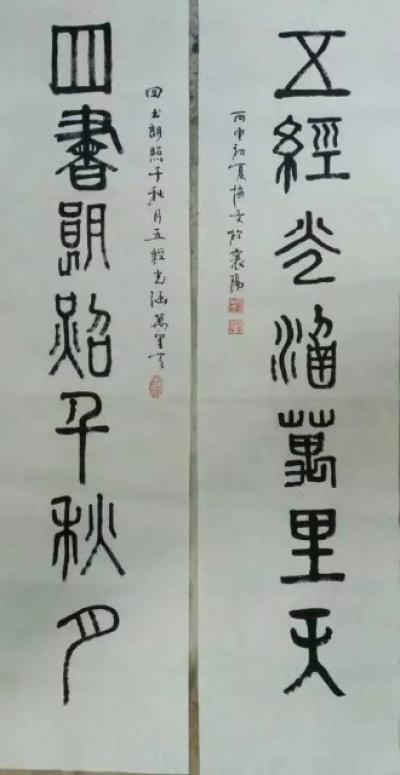 五經光涵萬里天
丙申初夏文於襄陽
四书朗照千秋月五經光涵萬里天
四書朗照千秋月